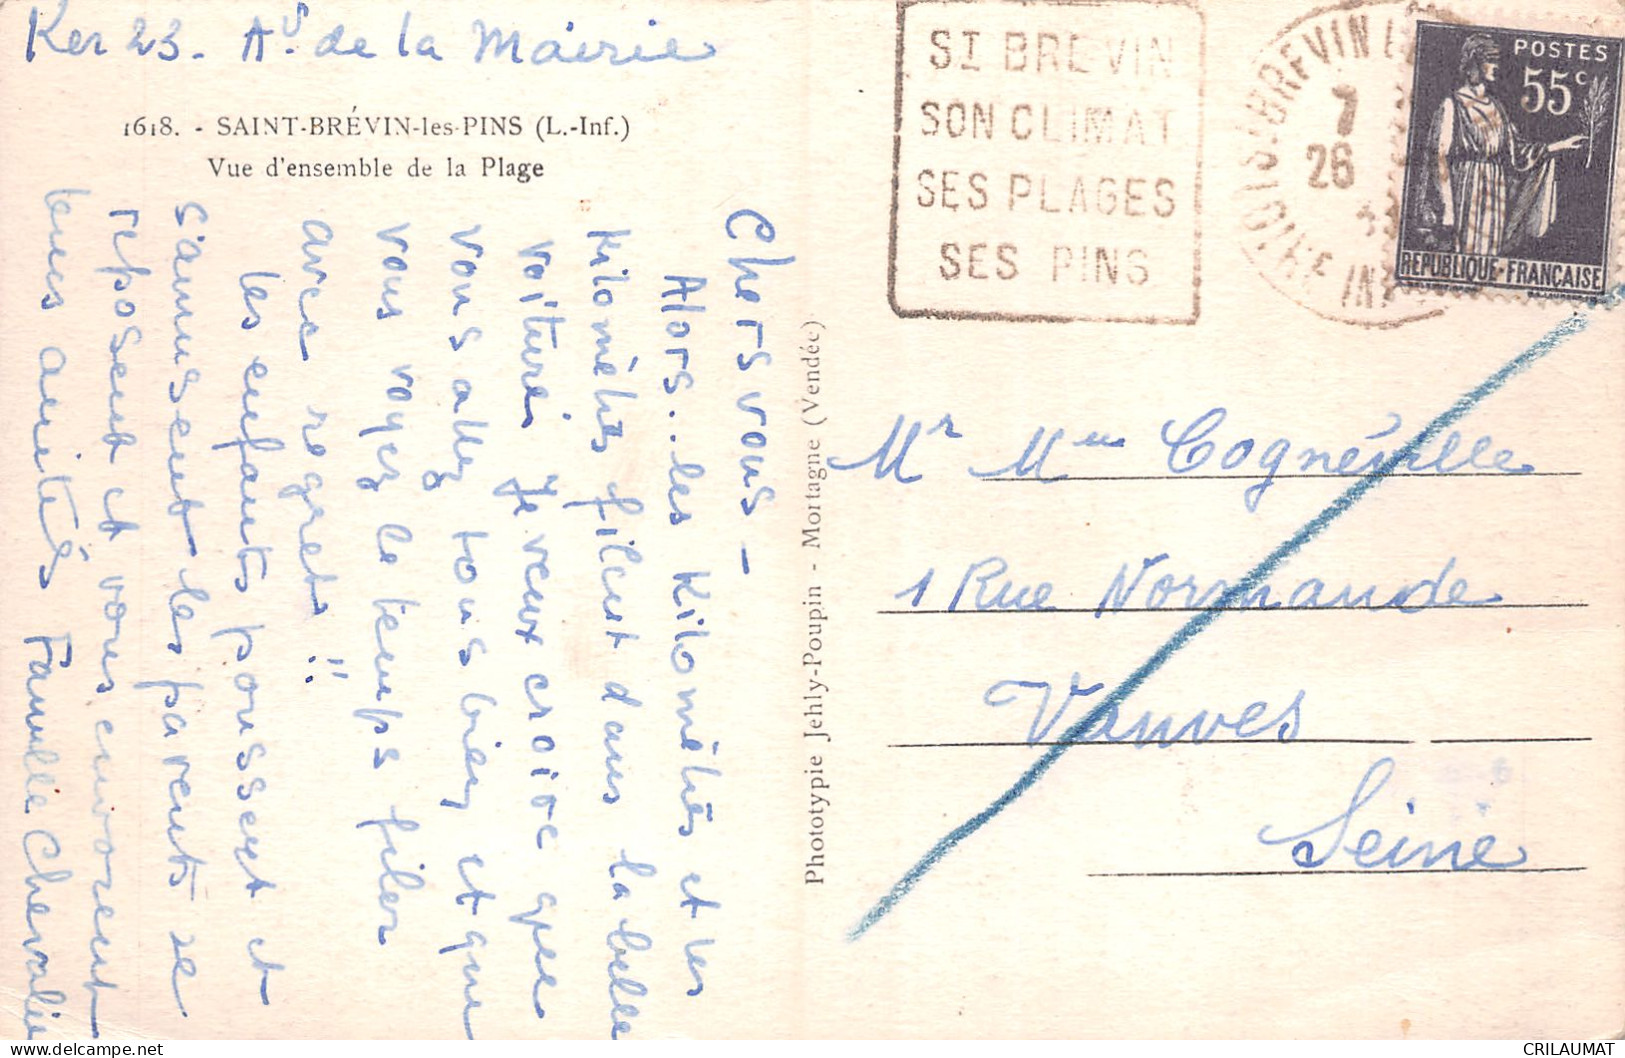 Ker 23. Av. de la Mairie
1618. - SAINT-BRÉVIN-les-PINS (L.-Inf.)
Vue d'ensemble de la Plage
Chers vous -
Alors.. les Kilomètres et les
Kilomètres filent dans la belle
voiture. Je veux croire que
vous allez tous bien et que
vous voyez le temps filer
avec regret !!
les enfants poussent et
s'amusent les parents se
reposent et vous envoient
leurs amitiés Famille Chevalier
Phototypie Jehly-Poupin - Mortagne (Vendée)
ST BREVIN
SON CLIMAT
SES PLAGES
SES PINS
ST BREVIN
7
26
LOIRE INF
POSTES
55c
REPUBLIQUE-FRANÇAISE
Mr Mme Cognéville
1 Rue Normande
Vanves
Seine
CRILAUMAT